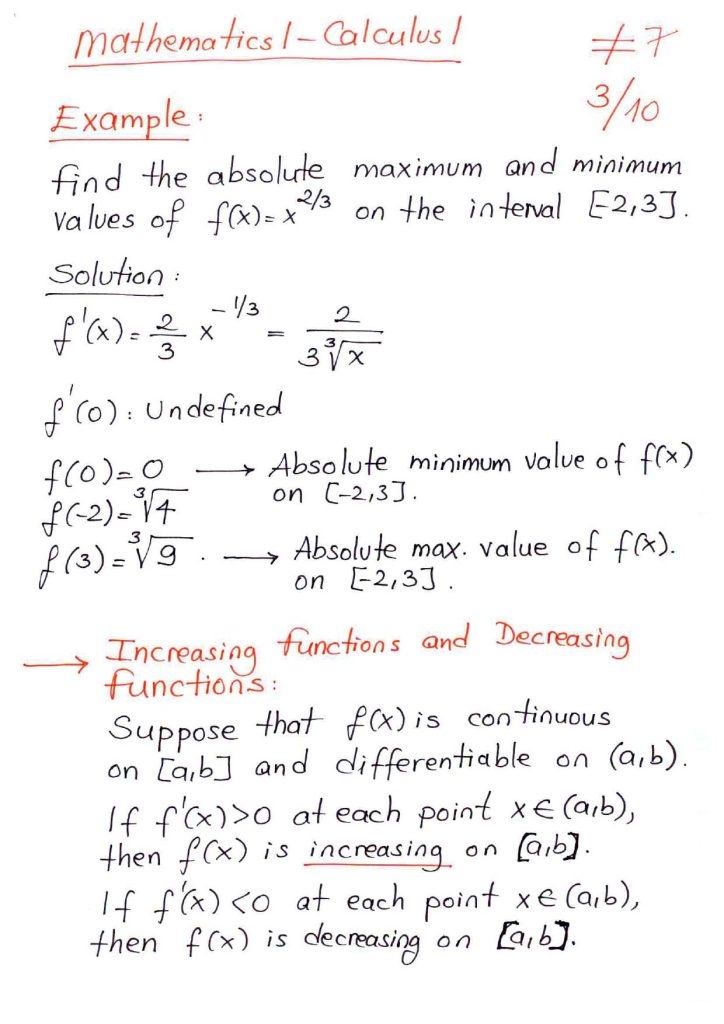 Mathematics 1 - Calculus 1
≠7
3/10
Example:
find the absolute maximum and minimum
values of f(x) = x^2/3 on the interval [-2,3].
Solution:
f'(x) = 2/3 x^-1/3 = 2/(3∛x)
f'(0): Undefined
f(0) = 0 → Absolute minimum value of f(x)
on [-2,3].
f(-2) = ∛4
f(3) = ∛9 . → Absolute max. value of f(x).
on [-2,3].
→ Increasing functions and Decreasing
functions:
Suppose that f(x) is continuous
on [a,b] and differentiable on (a,b).
If f'(x)>0 at each point x∈(a,b),
then f(x) is increasing on [a,b].
If f'(x)<0 at each point x∈(a,b),
then f(x) is decreasing on [a,b].